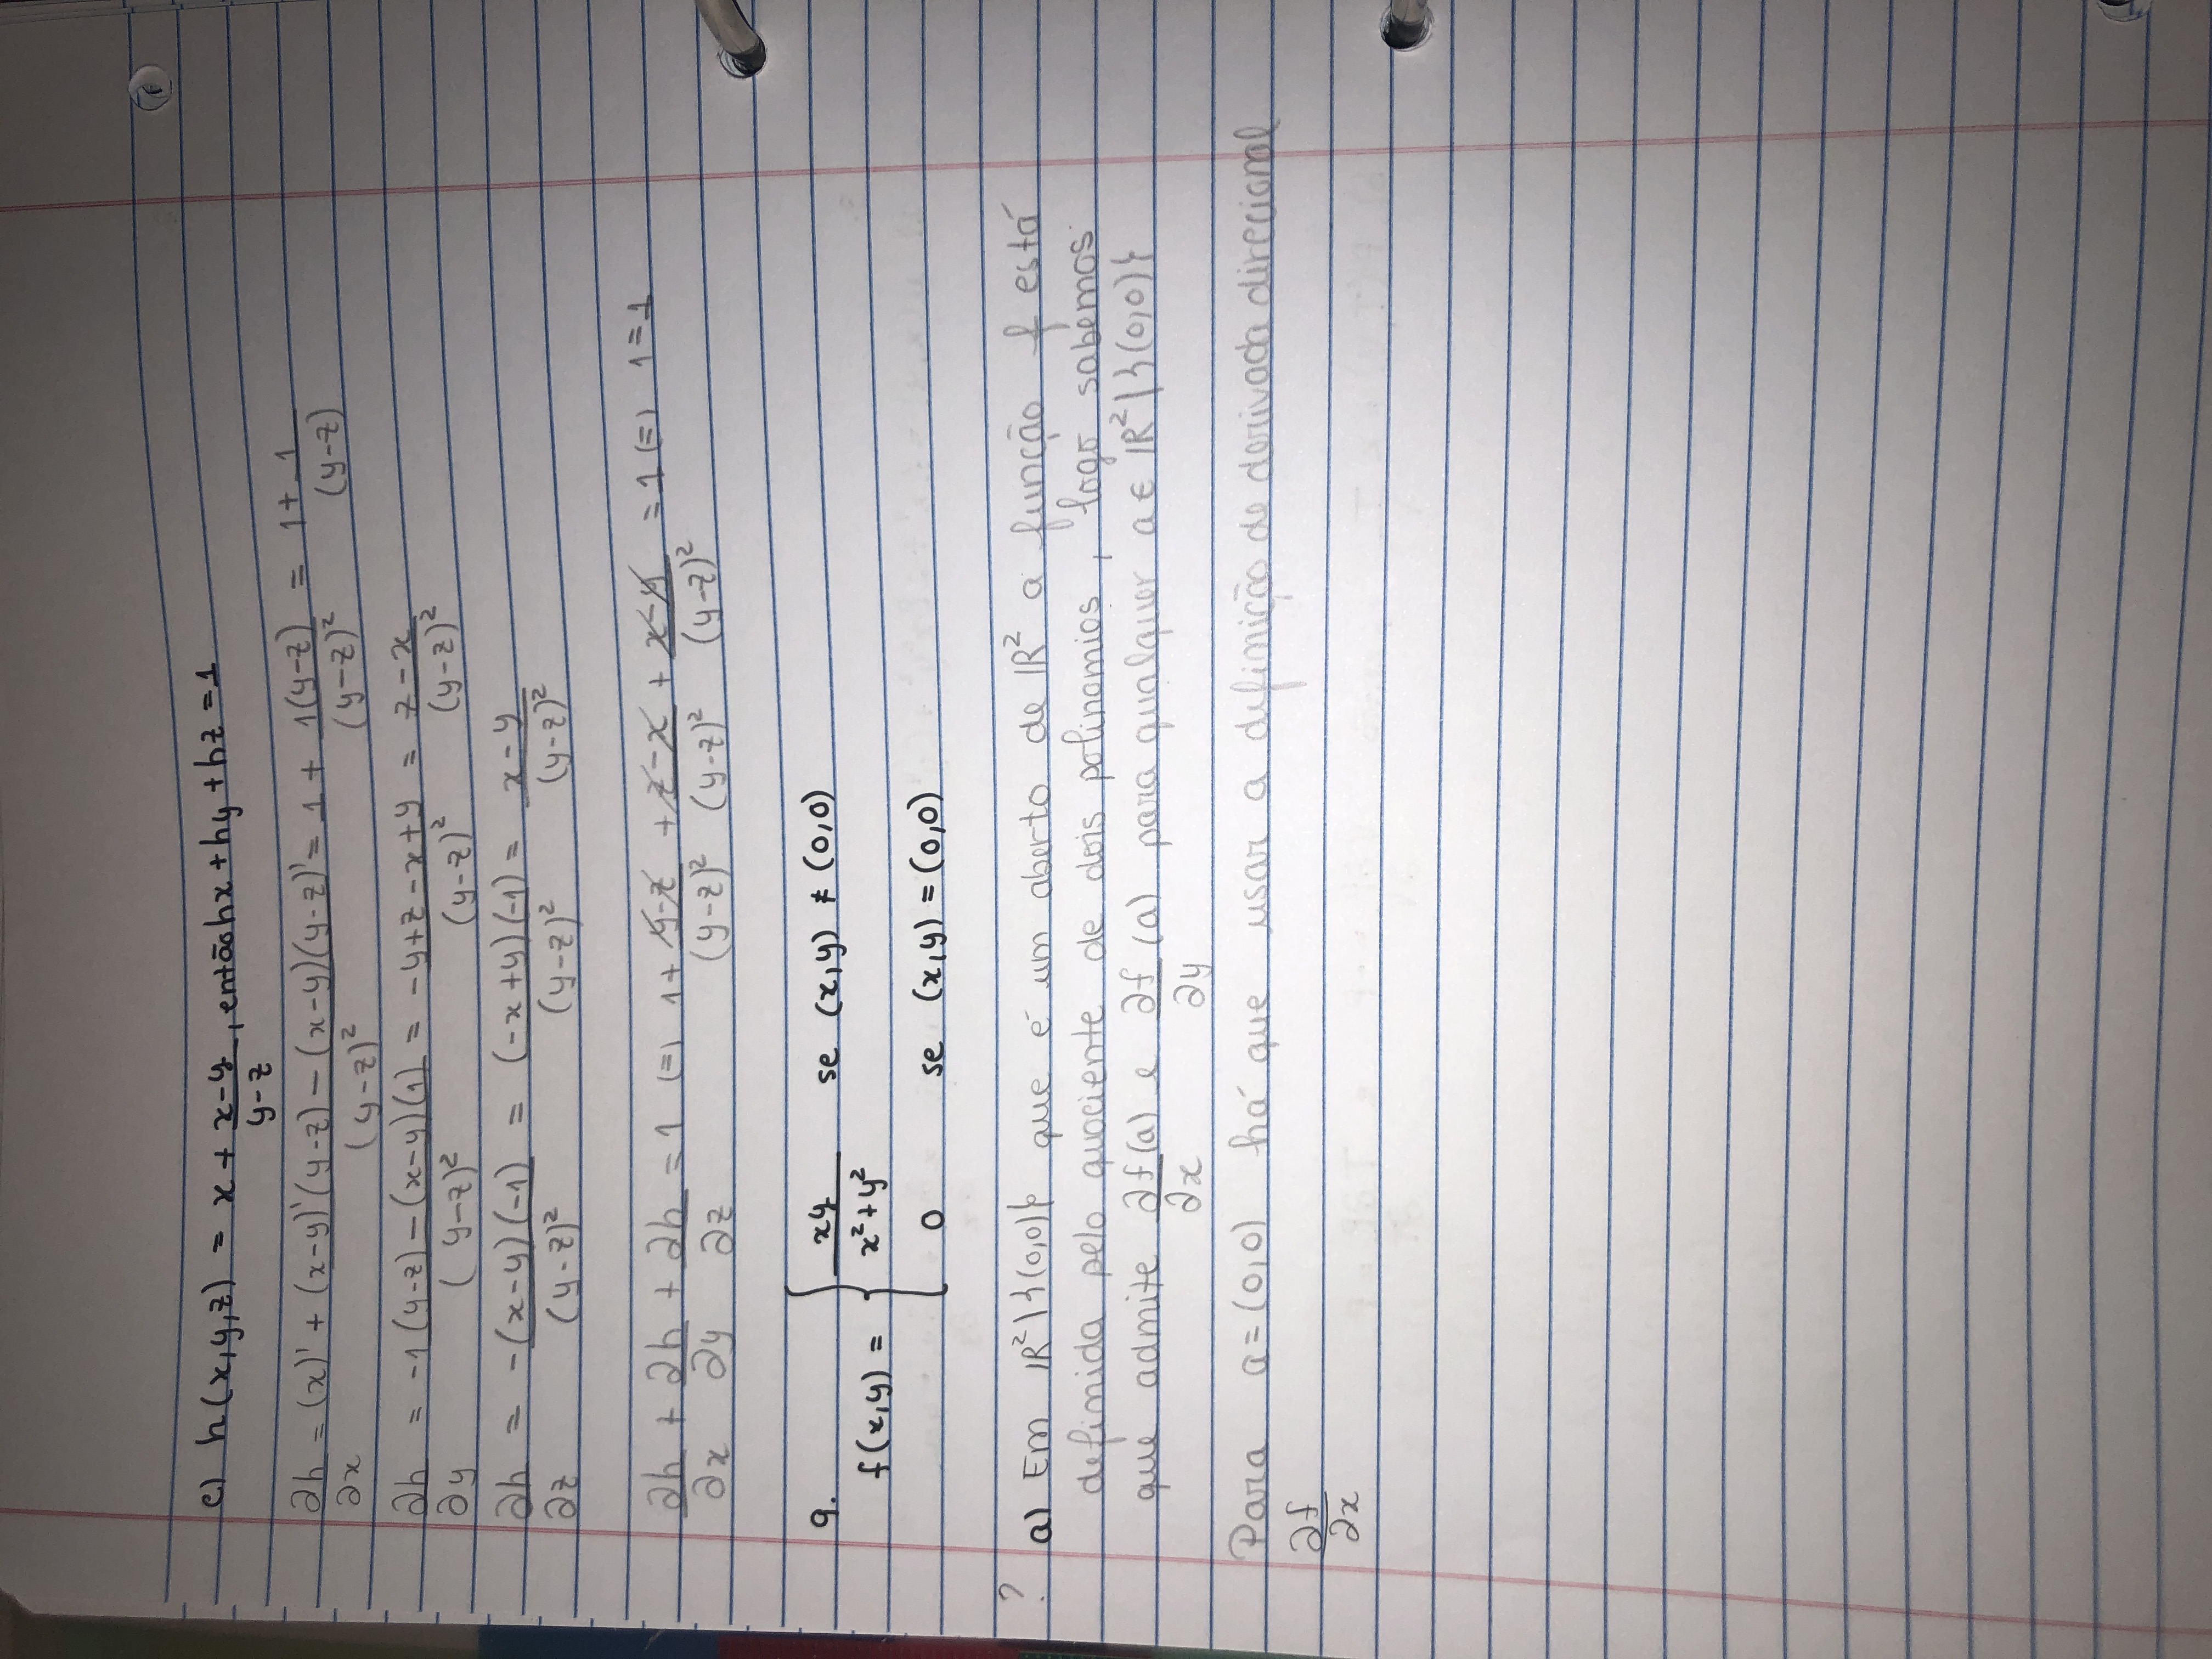 c) h(x,y,z) = x + (x-y)/(y-z), então hx + hy + hz = 1
∂h/∂x = (x)' + ((x-y)'(y-z) - (x-y)(y-z)')/(y-z)² = 1 + 1(y-z)/(y-z)² = 1 + 1/(y-z)
∂h/∂y = (-1(y-z) - (x-y)(1))/(y-z)² = (-y+z-x+y)/(y-z)² = (z-x)/(y-z)²
∂h/∂z = (-(x-y)(-1))/(y-z)² = ((-x+y)(-1))/(y-z)² = (x-y)/(y-z)²
∂h/∂x + ∂h/∂y + ∂h/∂z = 1 (=) 1 + (y-z)/(y-z)² + (z-x)/(y-z)² + (x-y)/(y-z)² = 1 (=) 1 = 1
9.
f(x,y) = { xy/(x²+y²) se (x,y) ≠ (0,0)
0 se (x,y) = (0,0)
? a) Em IR²\{(0,0)} que é um aberto de IR² a função f está
definida pelo quociente de dois polinomios, logo sabemos
que admite ∂f/∂x (a) e ∂f/∂y (a) para qualquer a ∈ IR²\{(0,0)}
Para a = (0,0) há que usar a definição de derivada direcional
∂f/∂x